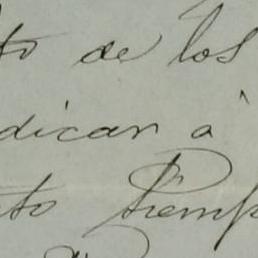 to de los
dicar à
to tiemp